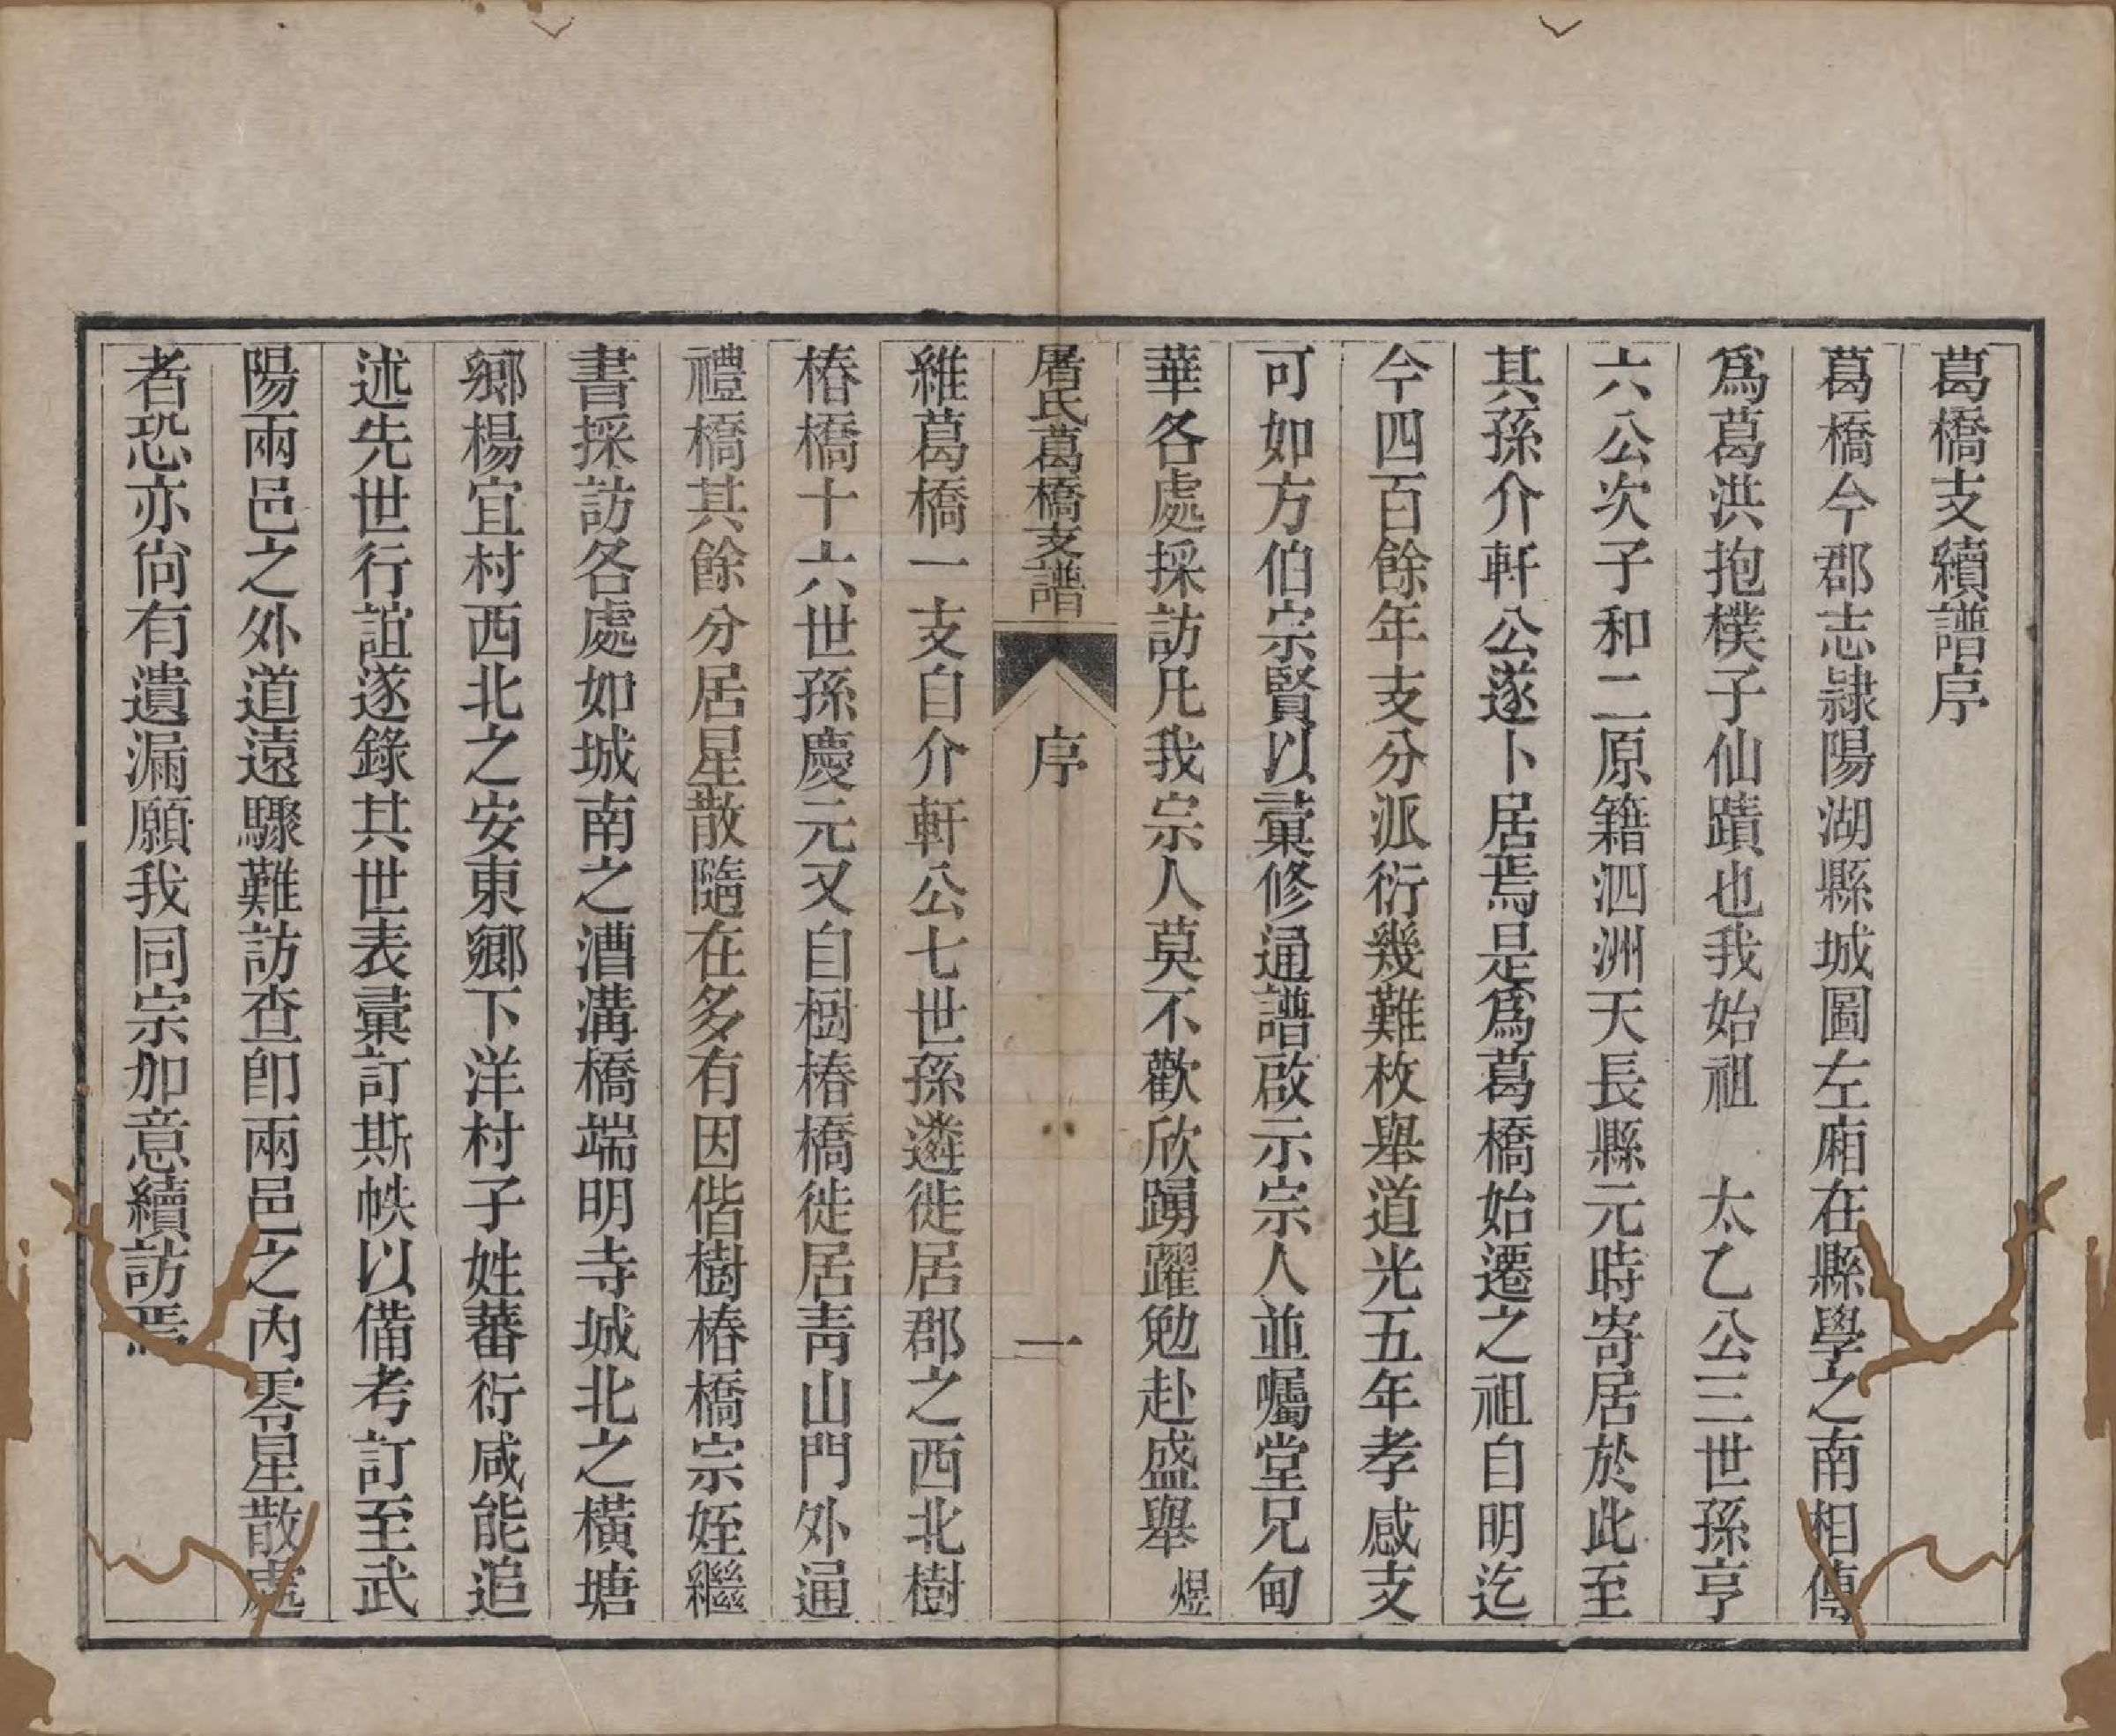 葛橋支續譜序
葛橋今郡志隷陽湖縣城圖左廂在縣學之南相傳
爲葛洪抱樸子仙蹟也我始祖　太乙公三世孫亨
六公次子和二原籍泗洲天長縣元時寄居於此至
其孫介軒公遂卜居焉是爲葛橋始遷之祖自明迄
今四百餘年支分派衍幾難枚舉道光五年孝感支
可如方伯宗賢以彙修通譜啟示宗人並囑堂兄甸
華各處採訪凡我宗人莫不歡欣踴躍勉赴盛舉煜
屠氏葛橋支譜　序　一
維葛橋一支自介軒公七世孫遴徙居郡之西北樹
椿橋十六世孫慶元又自樹椿橋徙居靑山門外通
禮橋其餘分居星散隨在多有因偕樹椿橋宗姪繼
書採訪各處如城南之漕溝橋端明寺城北之橫塘
鄉楊宜村西北之安東鄉下洋村子姓蕃衍咸能追
述先世行誼遂錄其世表彙訂斯帙以備考訂至武
陽兩邑之外道遠驟難訪查卽兩邑之內零星散處
者恐亦尙有遺漏願我同宗加意續訪焉